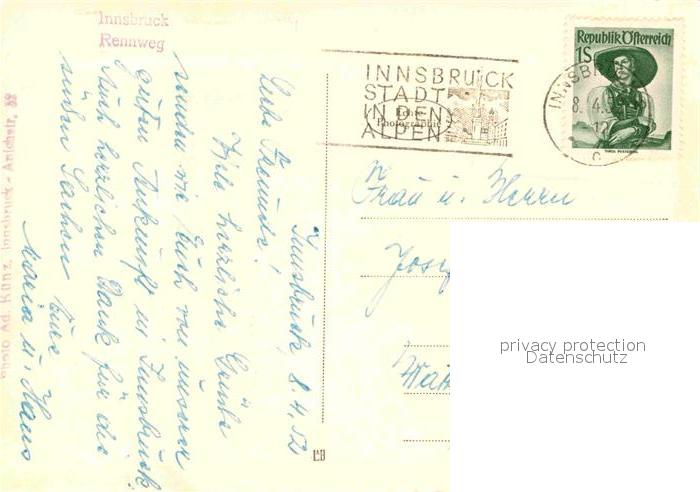 Innsbruck
Rennweg
Photo Ad. Künz, Innsbruck - Anichstr.
Innsbruck 8.4.52
Liebe Freunde!
Viele herzliche Grüße
senden wir Euch von unserer
guten Ankunft in Innsbruck
Auch herzlichen Dank für die
süßen Sachen Eure
Maria u. Hans
INNSBRUCK
STADT
IN DEN
ALPEN
Echte
Photographie
Republik Österreich
1S
INNSB
8.4.
Frau u. Herrn
Josef
privacy protection
Datenschutz